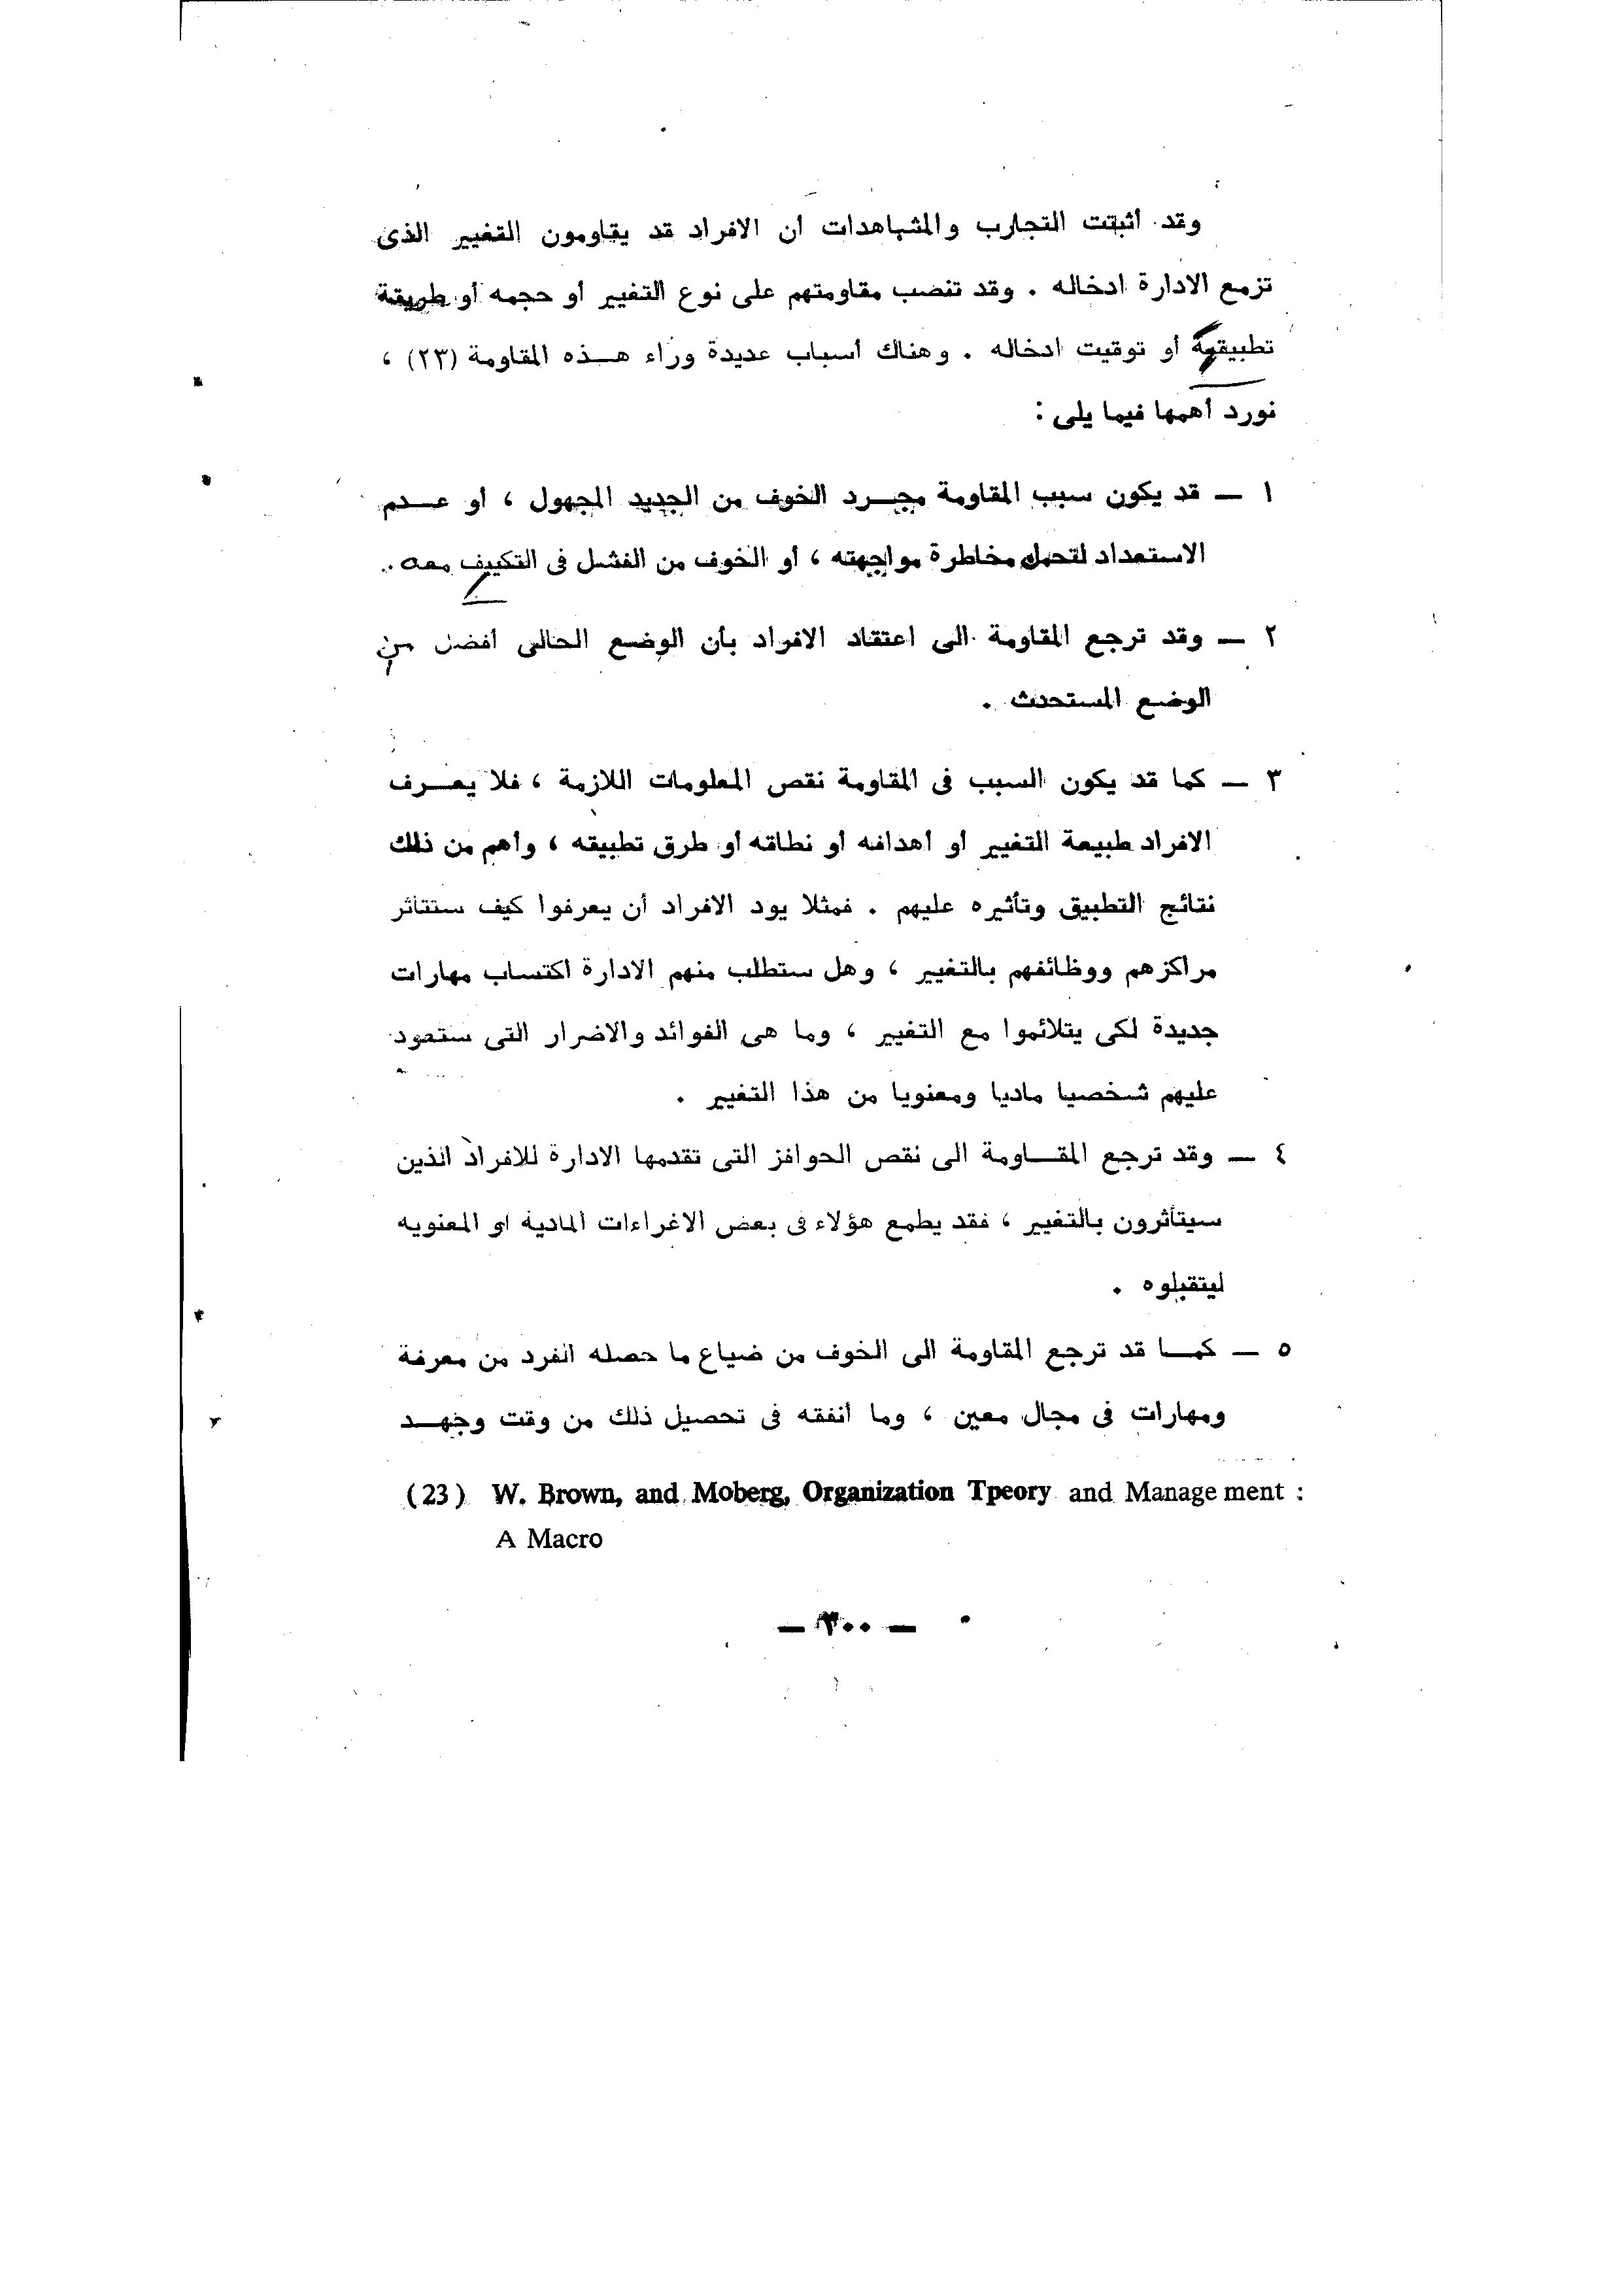 وقد أثبتت التجارب والمشاهدات أن الافراد قد يقاومون التغيير الذى
تزمع الادارة ادخاله . وقد تنصب مقاومتهم على نوع التغيير أو حجمه أو طريقة
أو توقيت ادخاله . وهناك أسباب عديدة وراء هـــذه المقاومة (٢٣) ،
نورد أهمها فيما يلى :
١ — قد يكون سبب المقاومة مجـــرد الخوف من الجديد المجهول ، أو عـــدم
الاستعداد لتحمل مخاطرة مواجهته ، أو الخوف من الفشل فى التكييف معه .
٢ — وقد ترجع المقاومة الى اعتقاد الافراد بأن الوضع الحالى أفضل من
الوضع المستحدث .
٣ — كما قد يكون السبب فى المقاومة نقص المعلومات اللازمة ، فلا يعـــرف
الافراد طبيعة التغيير أو أهدافه أو نطاقه أو طرق تطبيقه ، وأهم من ذلك
نتائج التطبيق وتأثيره عليهم . فمثلا يود الافراد أن يعرفوا كيف ستتأثر
مراكزهم ووظائفهم بالتغيير ، وهل ستطلب منهم الادارة اكتساب مهارات
جديدة لكى يتلائموا مع التغيير ، وما هى الفوائد والاضرار التى ستعود
عليهم شخصيا ماديا ومعنويا من هذا التغيير .
٤ — وقد ترجع المقـــاومة الى نقص الحوافز التى تقدمها الادارة للافراد الذين
سيتأثرون بالتغيير ، فقد يطمع هؤلاء فى بعض الاغراءات المادية أو المعنوية
ليتقبلوه .
٥ — كمـــا قد ترجع المقاومة الى الخوف من ضياع ما حصله الفرد من معرفة
ومهارات فى مجال معين ، وما أنفقه فى تحصيل ذلك من وقت وجهـــد
(23) W. Brown, and Moberg, Organization Tpeory and Management :
A Macro
— ٣٠٠ —